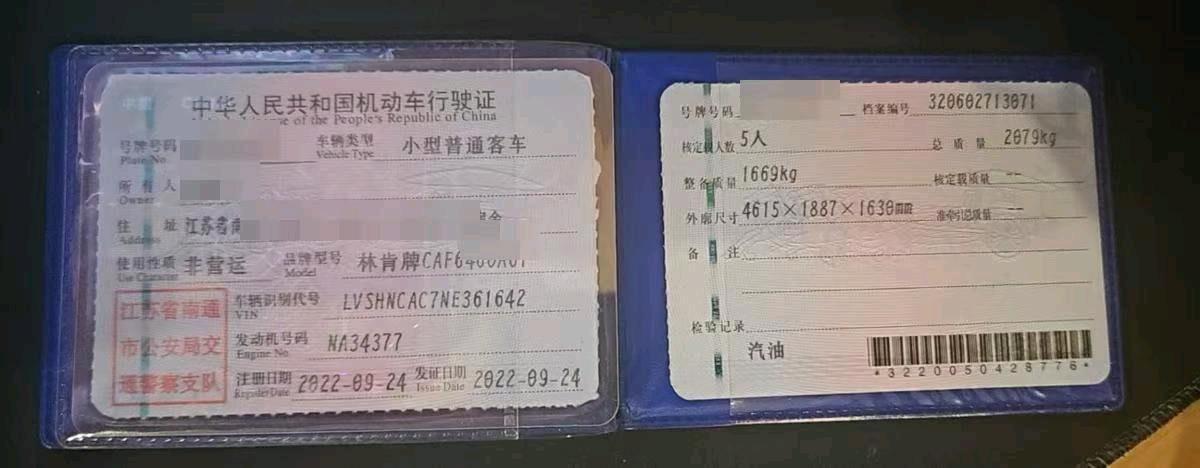 中华人民共和国机动车行驶证
e of the People's Republic of China
号牌号码
Plate No.
车辆类型
Vehicle Type
小型普通客车
所有人
Owner
住 址
Address
江苏省南
使用性质
Use Character
非营运
品牌型号
Model
林肯牌CAF6460A61
江苏省南通
市公安局交
通警察支队
车辆识别代号
VIN
LVSHNCAC7NE361642
发动机号码
Engine No.
NA34377
注册日期
Register Date
2022-09-24
发证日期
Issue Date
2022-09-24
号牌号码
档案编号 320602713071
核定载人数 5人
总质量 2079kg
整备质量 1669kg
核定载质量 --
外廓尺寸 4615×1887×1630mm
准牵引总质量 --
备 注
检验记录
汽油
*3220050428776*